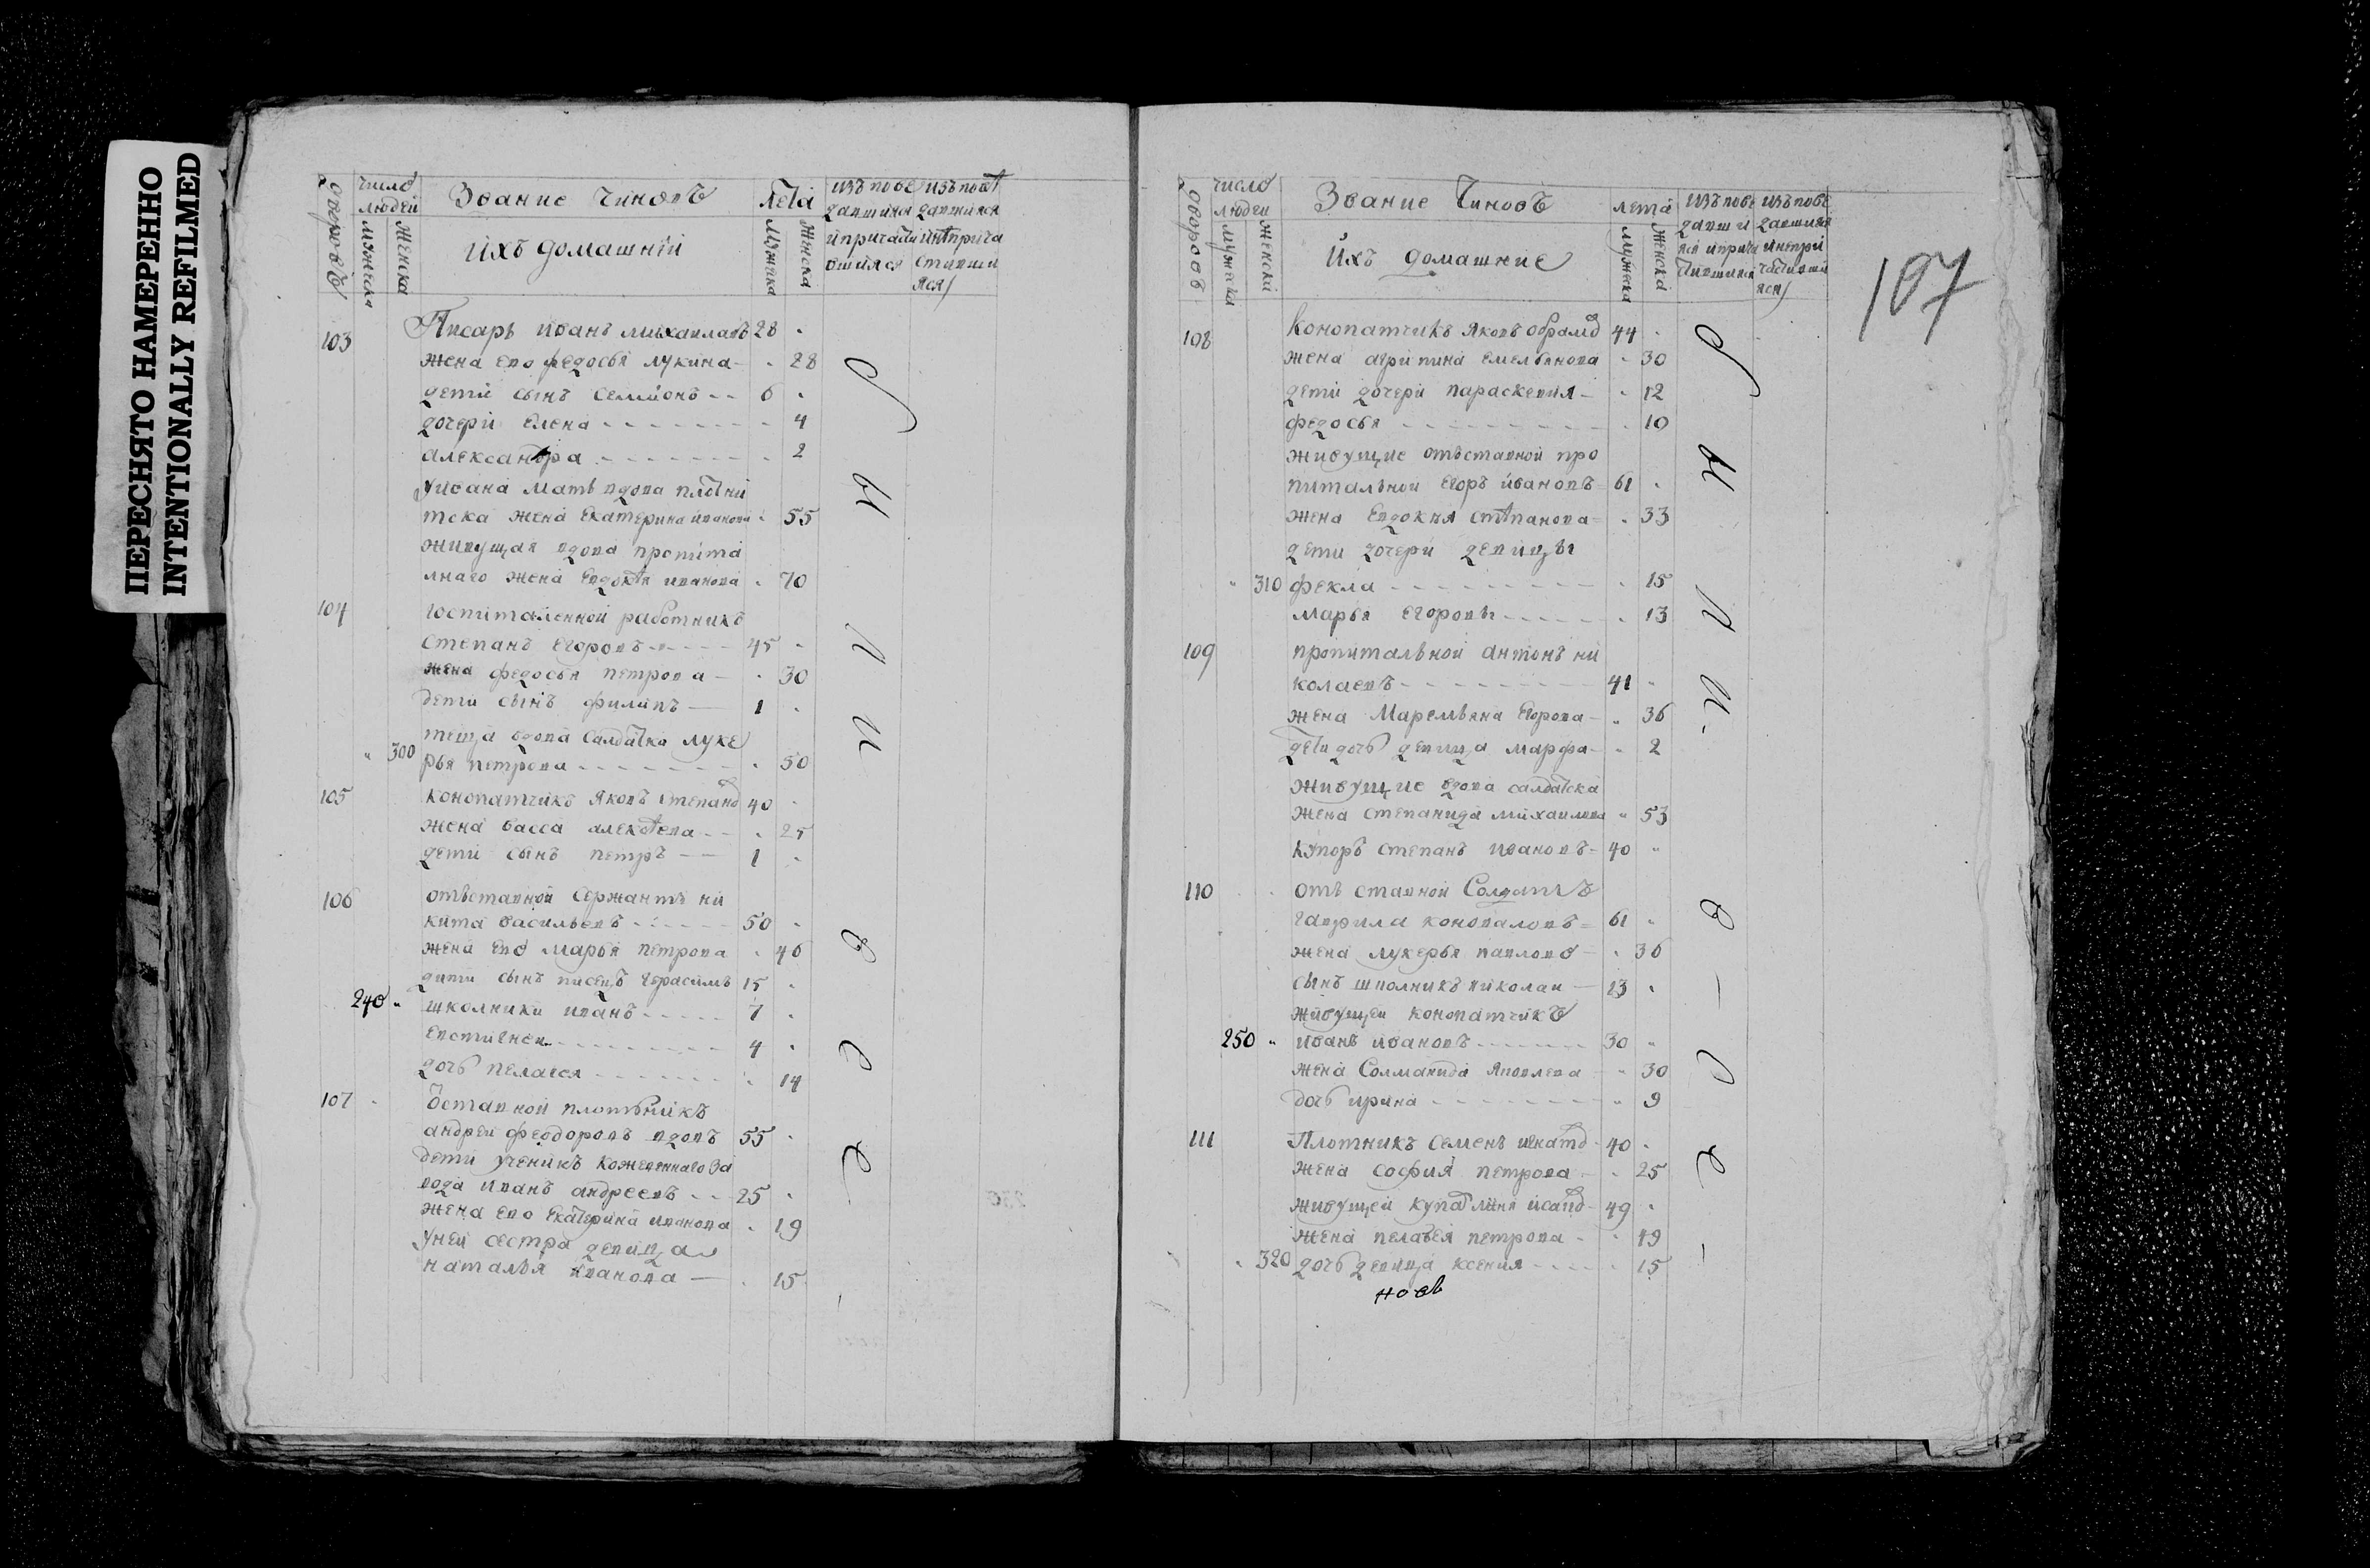 ПЕРЕСНЯТО НАМЕРЕННО
INTENTIONALLY REFILMED
дворовъ
число людей
мужеска
женска
Звание чиновъ
ихъ домашний
лета
мужеска
женска
103 Писарь иванъ михаилавъ 28
жена ево федосья лукина 28
дети сынъ семионъ 6
дочери елена 4
александра 2
уивана мать вдова плотни
тска жена екатерина иванова 55
живущая вдова пропита
лнаго жена евдокея иванова 70
104 госпиталенной работникъ
степанъ егоровъ 45
жена федосья петрова 30
дети сынъ филипъ 1
теща вдова салдатка луке
300 рья петрова 50
105 конопатчикъ яковъ степанов 40
жена васса алексеева 25
дети сынъ петръ 1
106 отвставной сержантъ ни
кита васильевъ 50
жена ево марья петрова 46
дети сынъ писецъ герасимъ 15
240 школники иванъ 7
евстигнеи 4
дочь пелагея 14
107 оставной плотьникъ
андреи феодоровъ вдовъ 55
дети ученикъ кожевеннаго за
вода иванъ андреевъ 25
жена ево екатерина иванова 19
уней сестра девица
наталья иванова 15
были
все
107
дворовъ
число людей
мужеска
женска
Звание чиновъ
ихъ домашние
лета
мужеска
женска
108 конопатчикъ яковъ обрамов 44
жена агрипина емельянова 30
дети дочери параскевия 12
федосья 10
живущие отвставной про
питальной егоръ ивановъ 61
жена евдокия степанова 33
дети дочери девицы
310 фекла 15
марья егоровы 13
109 пропитальной антонъ ни
колаевъ 41
жена маремьяна егорова 36
дети дочь девица марфа 2
живущие вдова салдатска
жена степанида михаилова 53
купоръ степанъ ивановъ 40
110 отъ ставной солдатъ
гаврила коноваловъ 61
жена лукерья павлова 36
сынъ школникъ николаи 13
живущеи конопатчикъ
250 иванъ ивановъ 30
жена солманида яковлева 30
дочь ирина 9
111 Плотникъ семенъ игнатов 40
жена софия петрова 25
49
жена пелагея петрова 49
320 дочь девица ксения 15
были
все